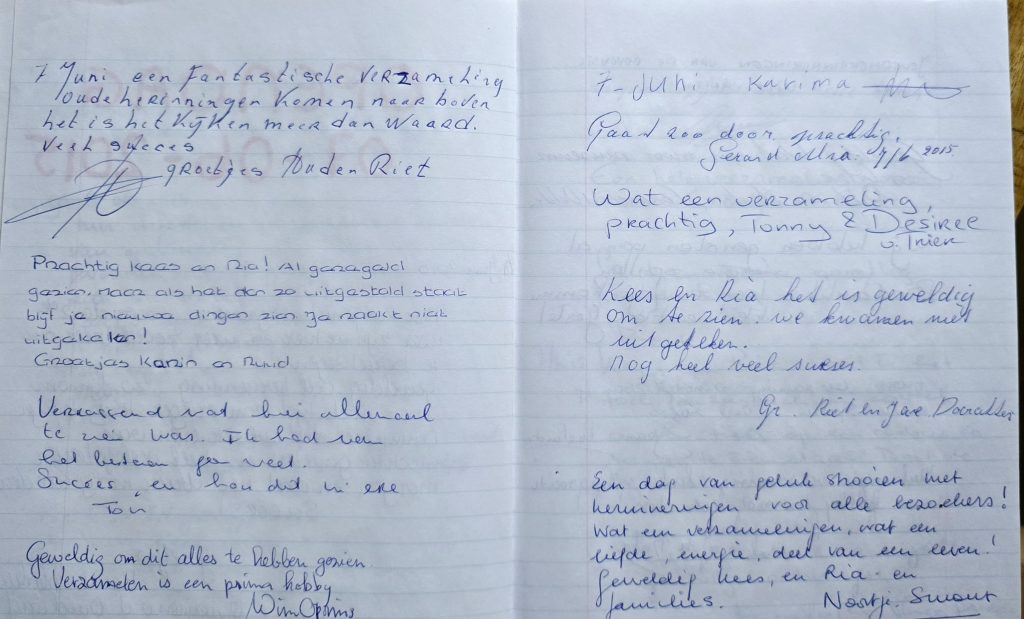 7 Juni een Fantastische verzameling
oude herinningen komen naar boven
het is het kijken meer dan waard.
veel succes
groetjes Riet
Prachtig Kees en Ria! Al geregeld
gezien, maar als het dan zo uitgestald staat
blijf je nieuwe dingen zien. Je raakt niet
uitgekeken!
Groetjes Karin en Ruud
Verrassend wat hier allemaal
te zien was. Ik had van
het bestaan geen weet.
Succes, en hou dit in ere
Ton
Geweldig om dit alles te hebben gezien
Verzamelen is een prima hobby
Wim
7-Juni Karima
Gaat zoo door prachtig.
Gerard Mia. 7/6 2015
Wat een verzameling,
prachtig, Tonny & Desiree
v. Trier
Kees en Ria het is geweldig
om te zien. we kwamen niet
uitgekeken.
nog heel veel sukses.
Gr. Riet en
Een dag van geluk strooien met
herinneringen voor alle bezoekers!
Wat een verzamelingen, wat een
liefde, energie, deel van een leven!
Geweldig Kees, en Ria en
families. Noortje Smout